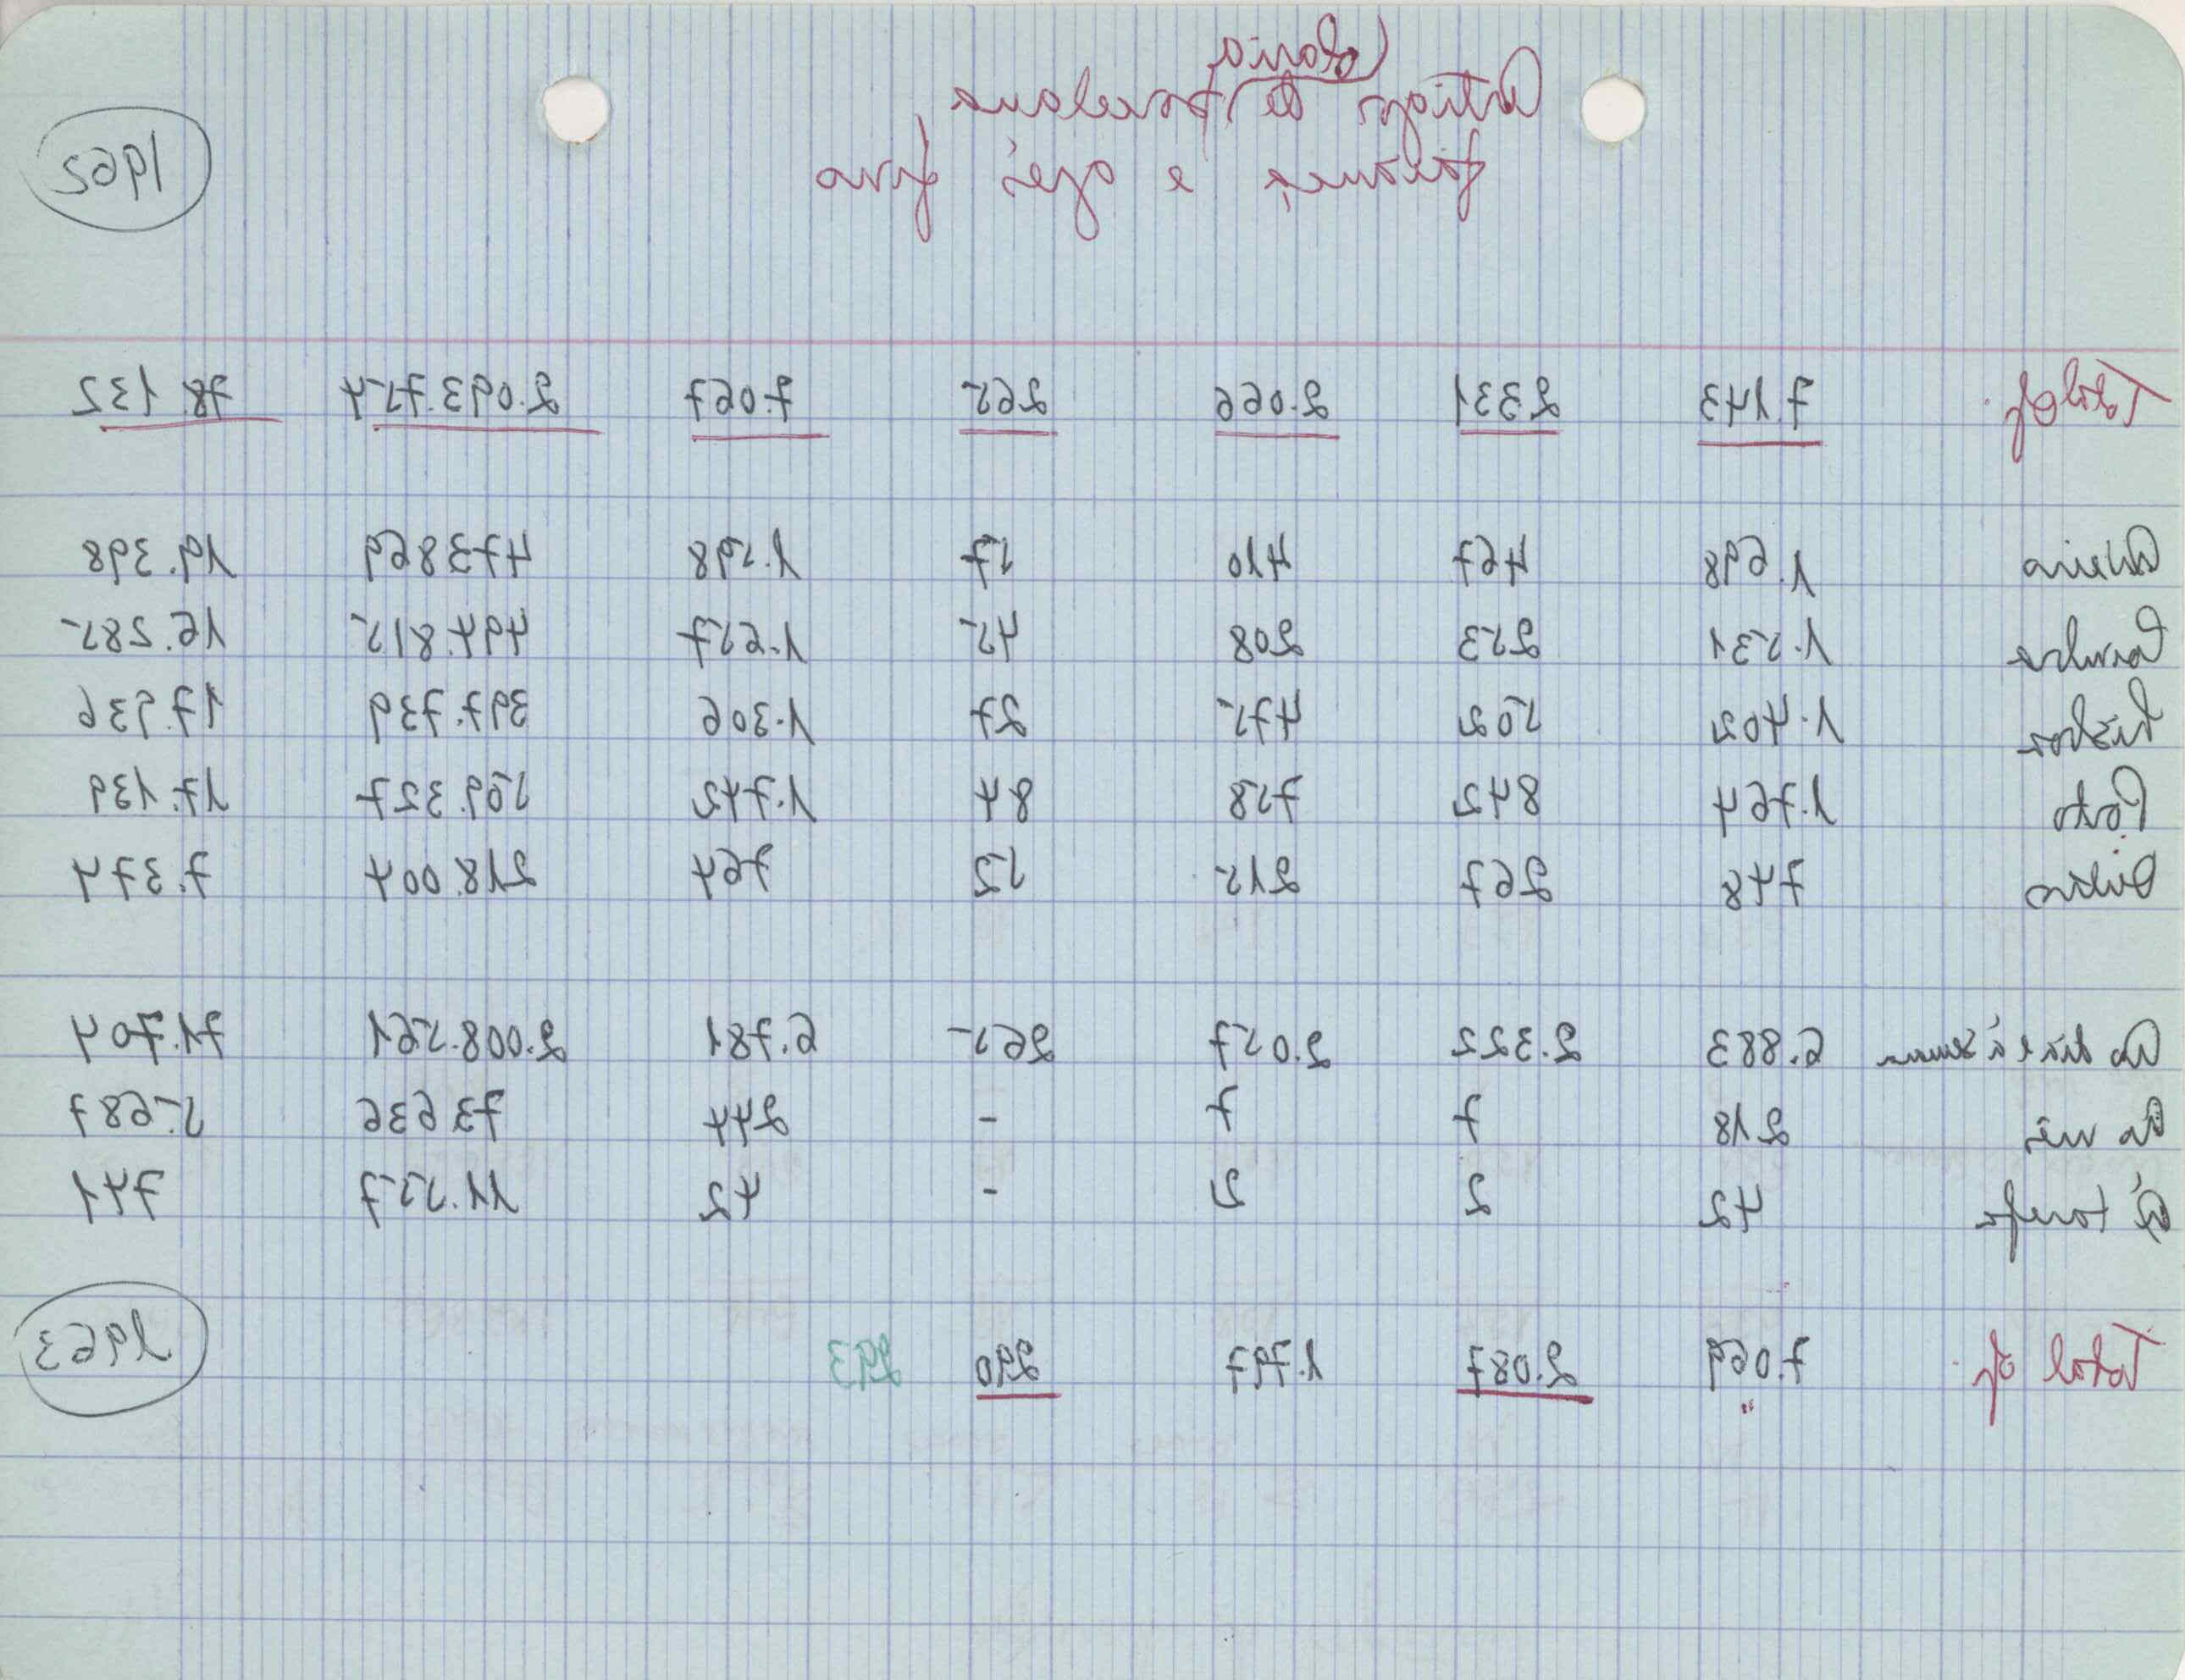 Artigos de porcelana
faiança e grés fino
1962
Total of. 7.143 2331 2.066 265 7.067 2.093.754 78.132
Aveiro 1.698 467 410 57 1.598 473869 19.398
Coimbra 1.531 253 208 45 1.657 494.815 16.285
Lisboa 1.402 502 475 27 1.306 397.739 17.936
Porto 1.764 842 758 84 1.742 509.327 17.139
Outros 748 267 215 52 764 218.004 7.374
Ao dia e à semana 6.883 2.322 2.057 265 6.781 2.008.561 71.704
Ao mês 218 7 7 - 244 73636 5.687
À tarefa 42 2 2 - 42 11.557 741
Total of. 7.069 2.087 1.797 290 293 1963
"